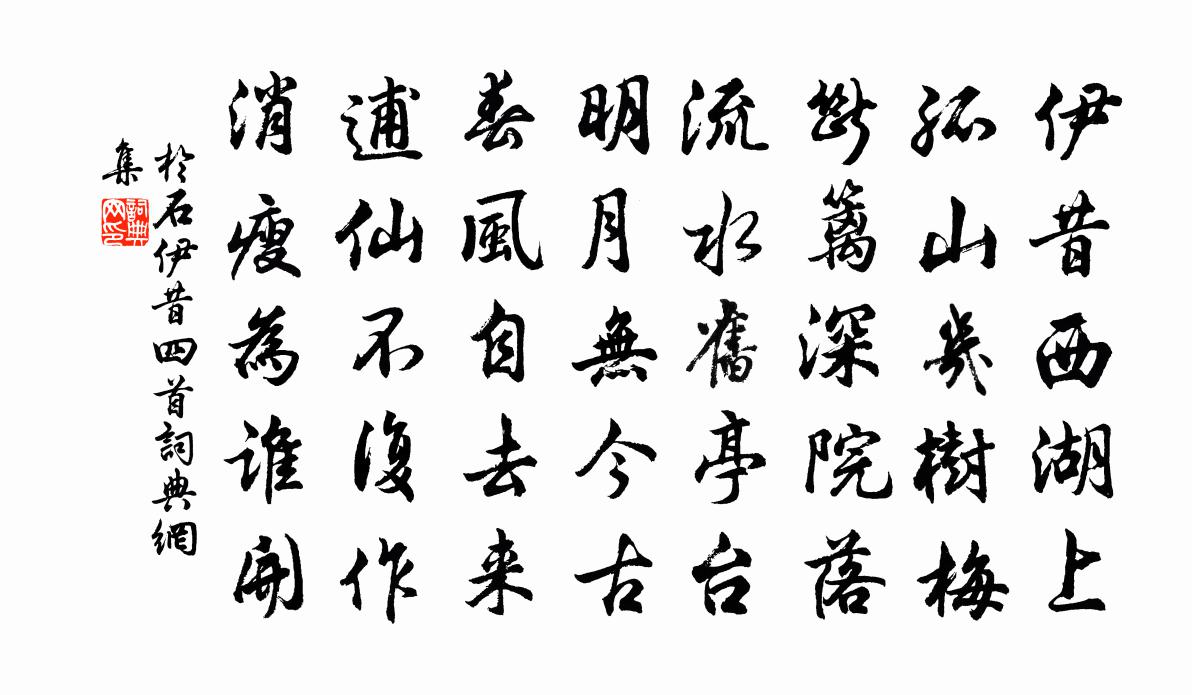 伊昔西湖上
孤山幾樹梅
斷籬深院落
流水舊亭台
明月無今古
春風自去来
逋仙不復作
消瘦為誰開
於石伊昔四首詞典網
集
詞典
网印